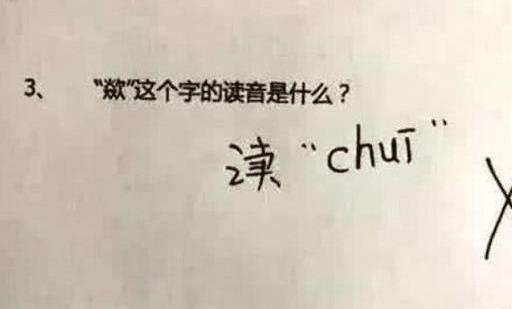 3、 “歘”这个字的读音是什么？
读“chuī”